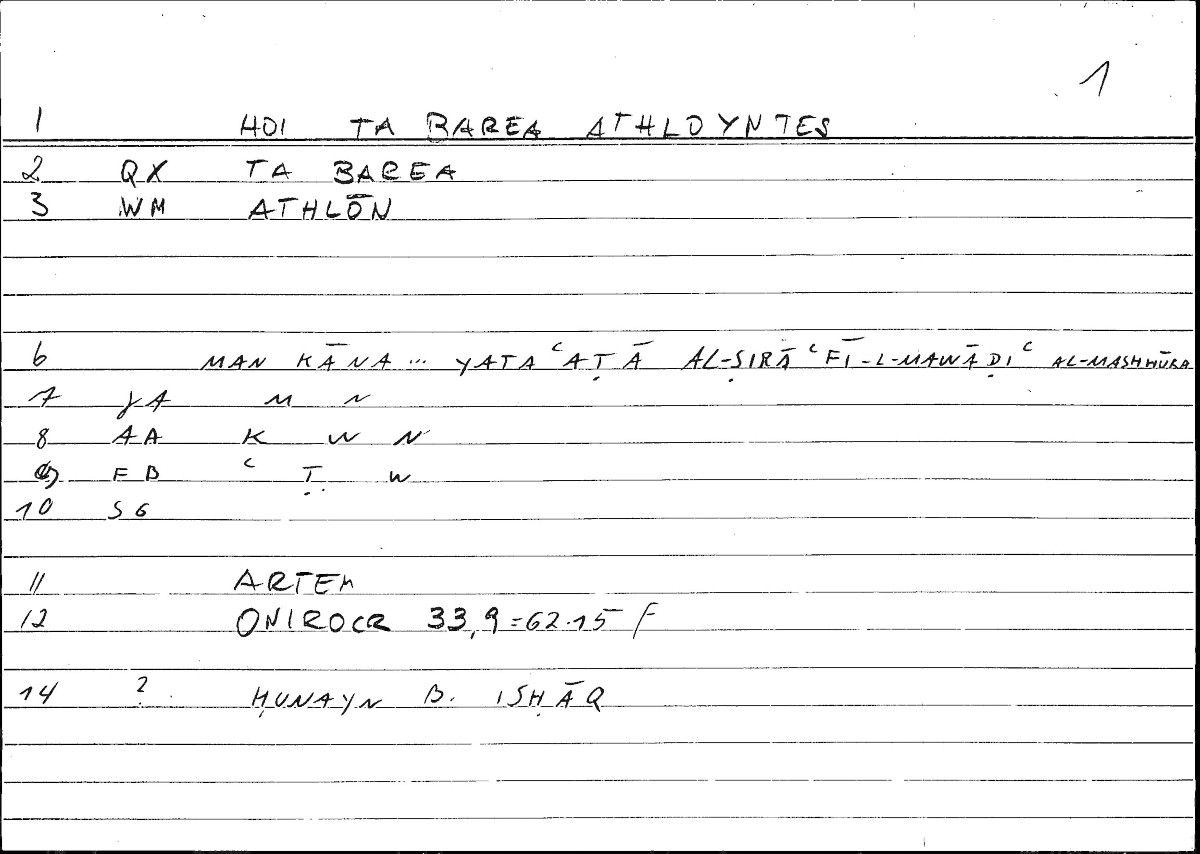 1
1 HOI TA BAREA ATHLOYNTES
2 QX TA BAREA
3 WM ATHLŌN
6 MAN KĀNA ... YATAʿAṬĀ AL-ṢIRĀʿ FĪ-L-MAWĀḌIʿ AL-MASHHŪRA
7 YA M N
8 AA K W N
9 FB ʿ Ṭ W
10 SG
11 ARTEM
12 ONIROCR 33,9=62.15 f
14 ? ḤUNAYN B. ISḤĀQ